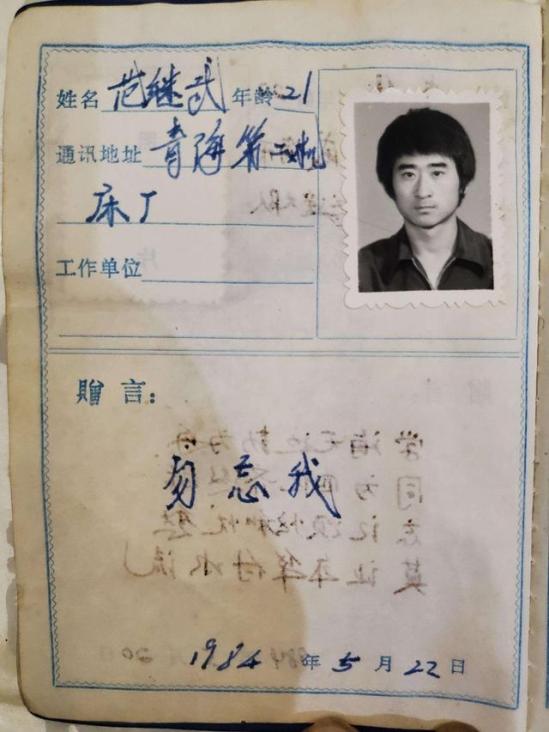 姓名 范继武 年龄 21
通讯地址 青海第二机
床厂
工作单位
赠言:
勿忘我
1984年5月22日